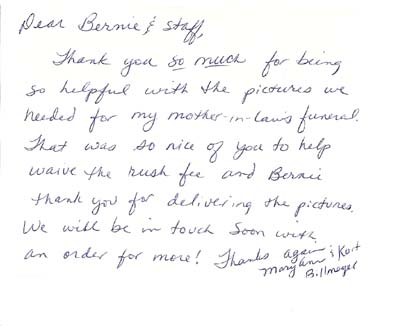 Dear Bernie & Staff,
Thank you so much for being
so helpful with the pictures we
needed for my mother-in-law's funeral.
That was so nice of you to help
waive the rush fee and Bernie
thank you for delivering the pictures.
We will be in touch soon with
an order for more! Thanks again
Mary Ann & Kurt
Billmeyer